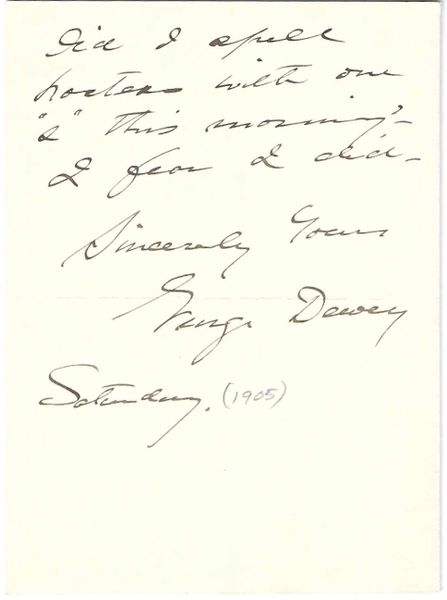 Did I spell
hostess with one
"s" this morning -
I fear I did -
Sincerely Yours
George Dewey
Saturday. (1905)